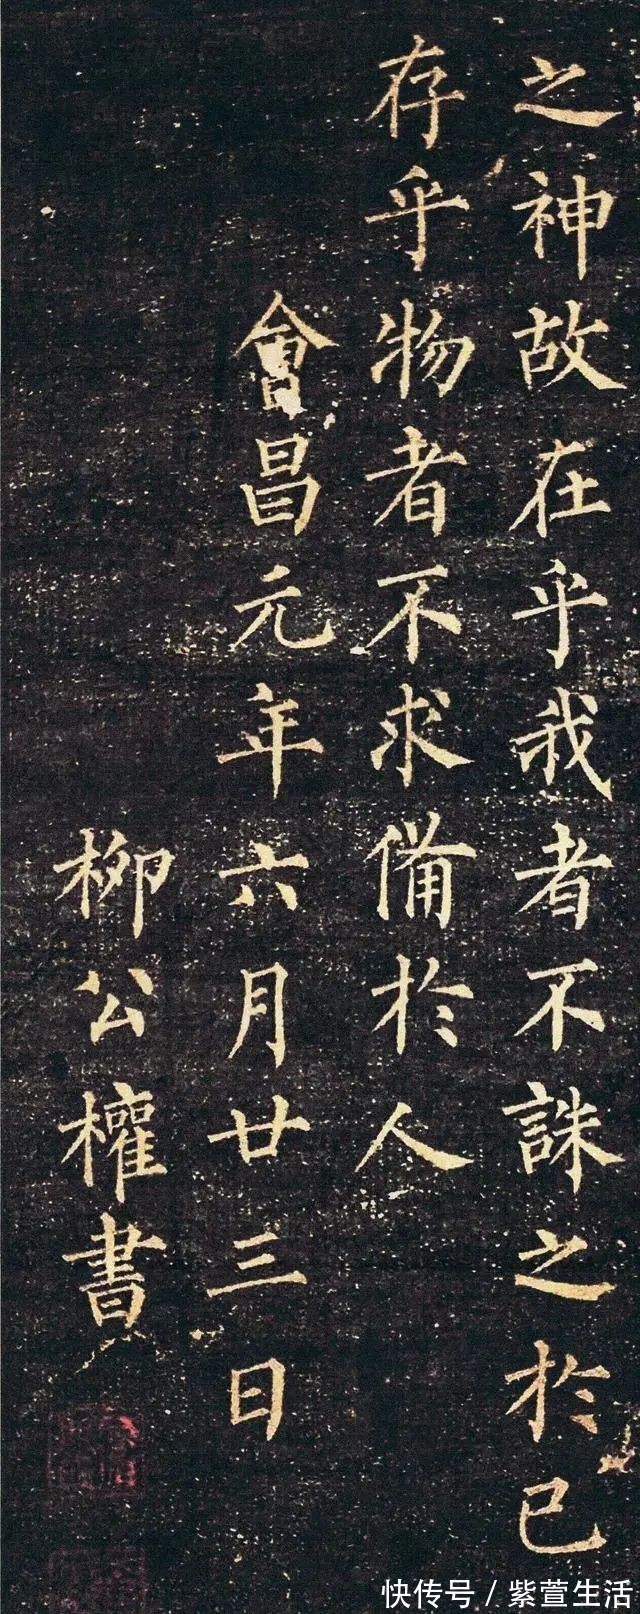 之神故在乎我者不誅之於已
存乎物者不求備於人
會昌元年六月廿三日
柳公權書
快传号／紫萱生活